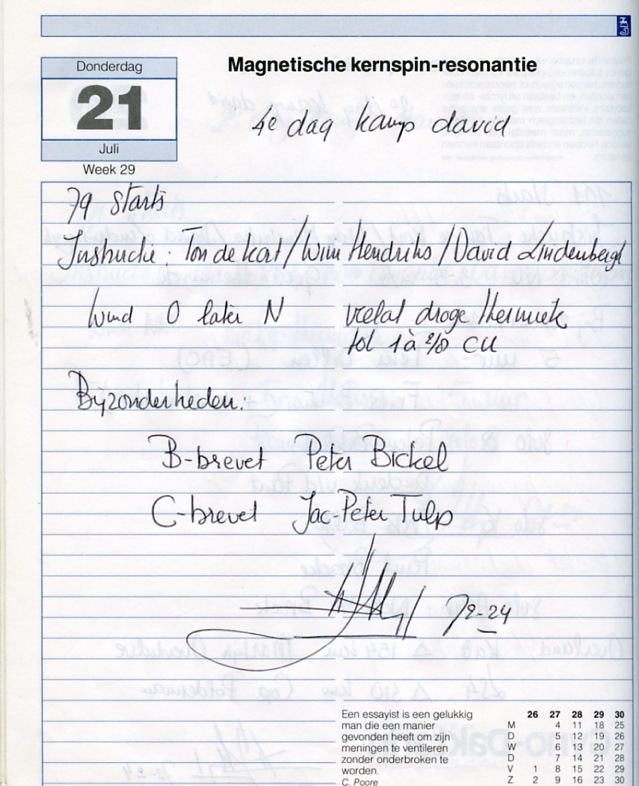 Donderdag
21
Juli
Week 29
Magnetische kernspin-resonantie
4e dag kamp david
79 starts
Instructie: Ton de kort/Wim Hendriks/David Lindenbergh
Wind O later N veelal droge thermiek
tot 1 à 2/8 CU
Bijzonderheden:
B-brevet Peter Bickel
C-brevet Jac-Peter Tulp
72-24
Een essayist is een gelukkig
man die een manier
gevonden heeft om zijn
meningen te ventileren
zonder onderbroken te
worden.
C. Poore
26 27 28 29 30
M 4 11 18 25
D 5 12 19 26
W 6 13 20 27
D 7 14 21 28
V 1 8 15 22 29
Z 2 9 16 23 30